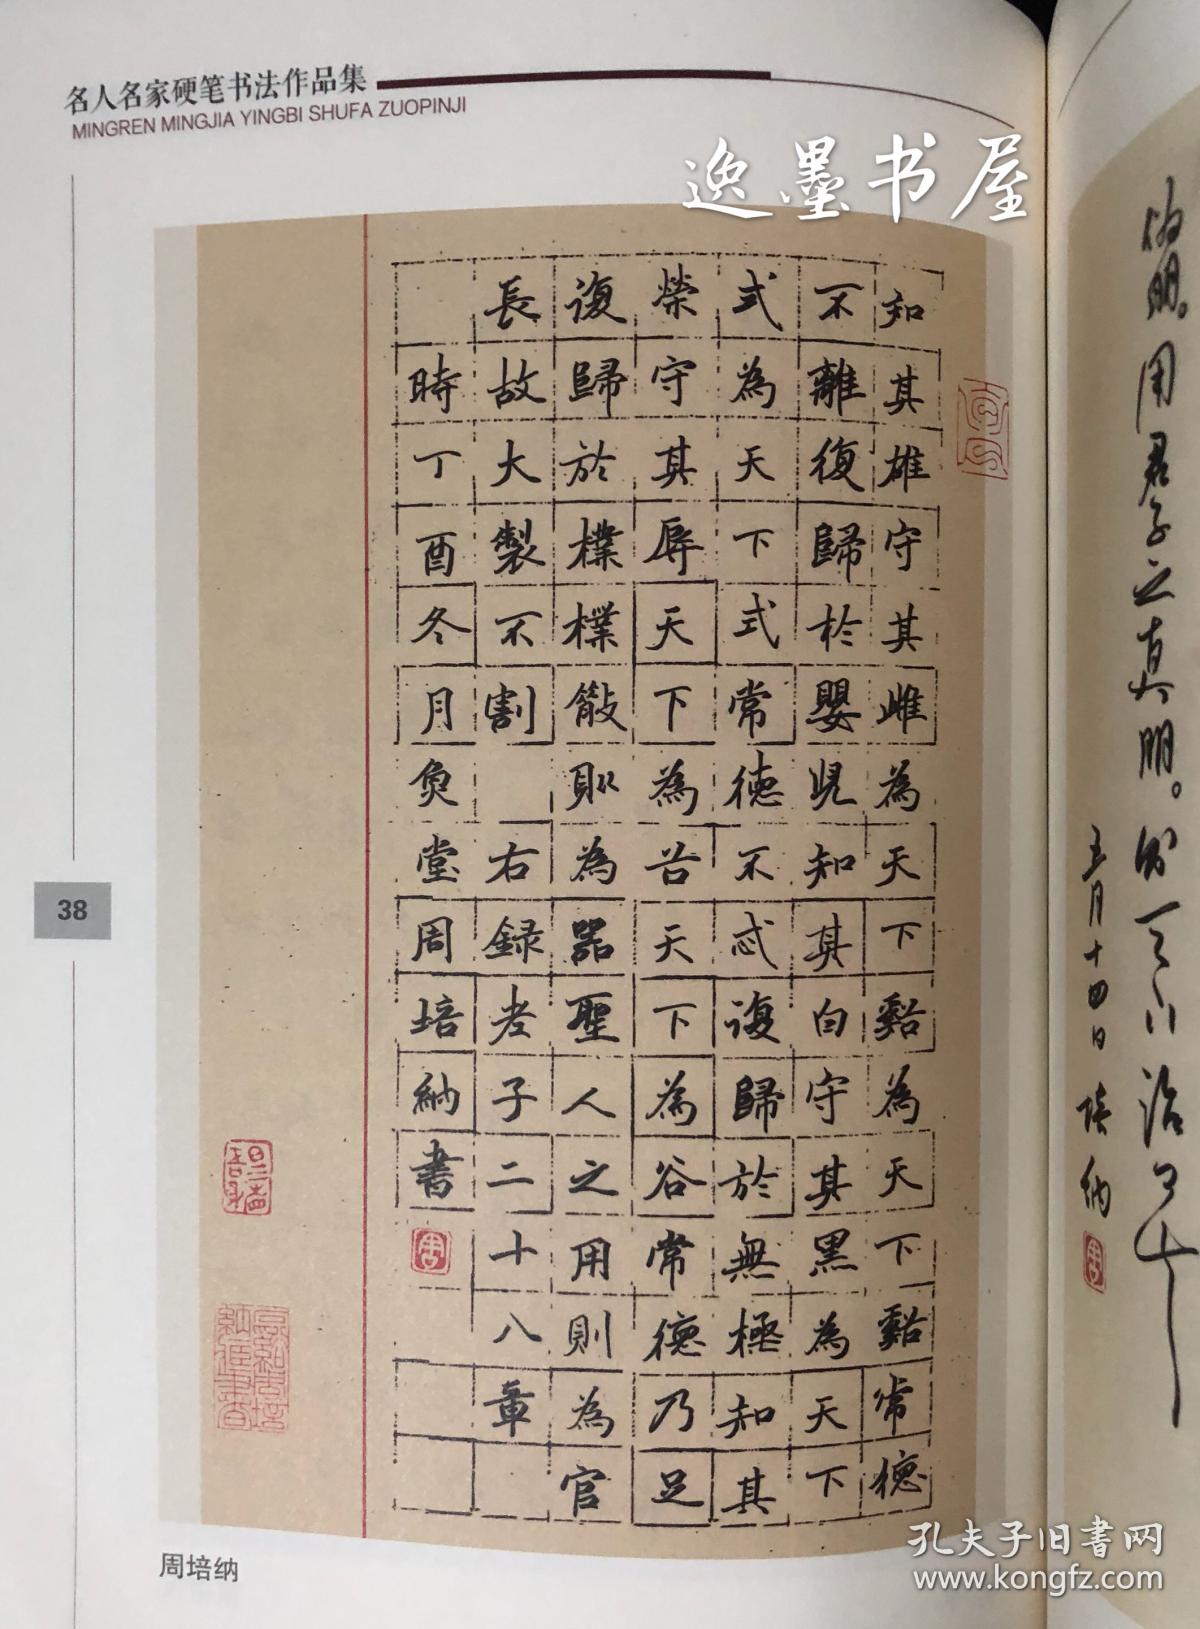 名人名家硬笔书法作品集
MINGREN MINGJIA YINGBI SHUFA ZUOPINJI
逸墨书屋
知其雄守其雌為天下谿為天下谿常德
不離復歸於嬰児知其白守其黑為天下
式為天下式常德不忒復歸於無極知其
榮守其辱天下為谷天下為谷常德乃足
復歸於樸樸散則為器聖人之用則為官
長故大製不割 右録老子二十八章
時丁酉冬月堂周培納書
周
38
周培纳
明。用君子之真明。
五月十四日 培纳
周
孔夫子旧书网
www.kongfz.com